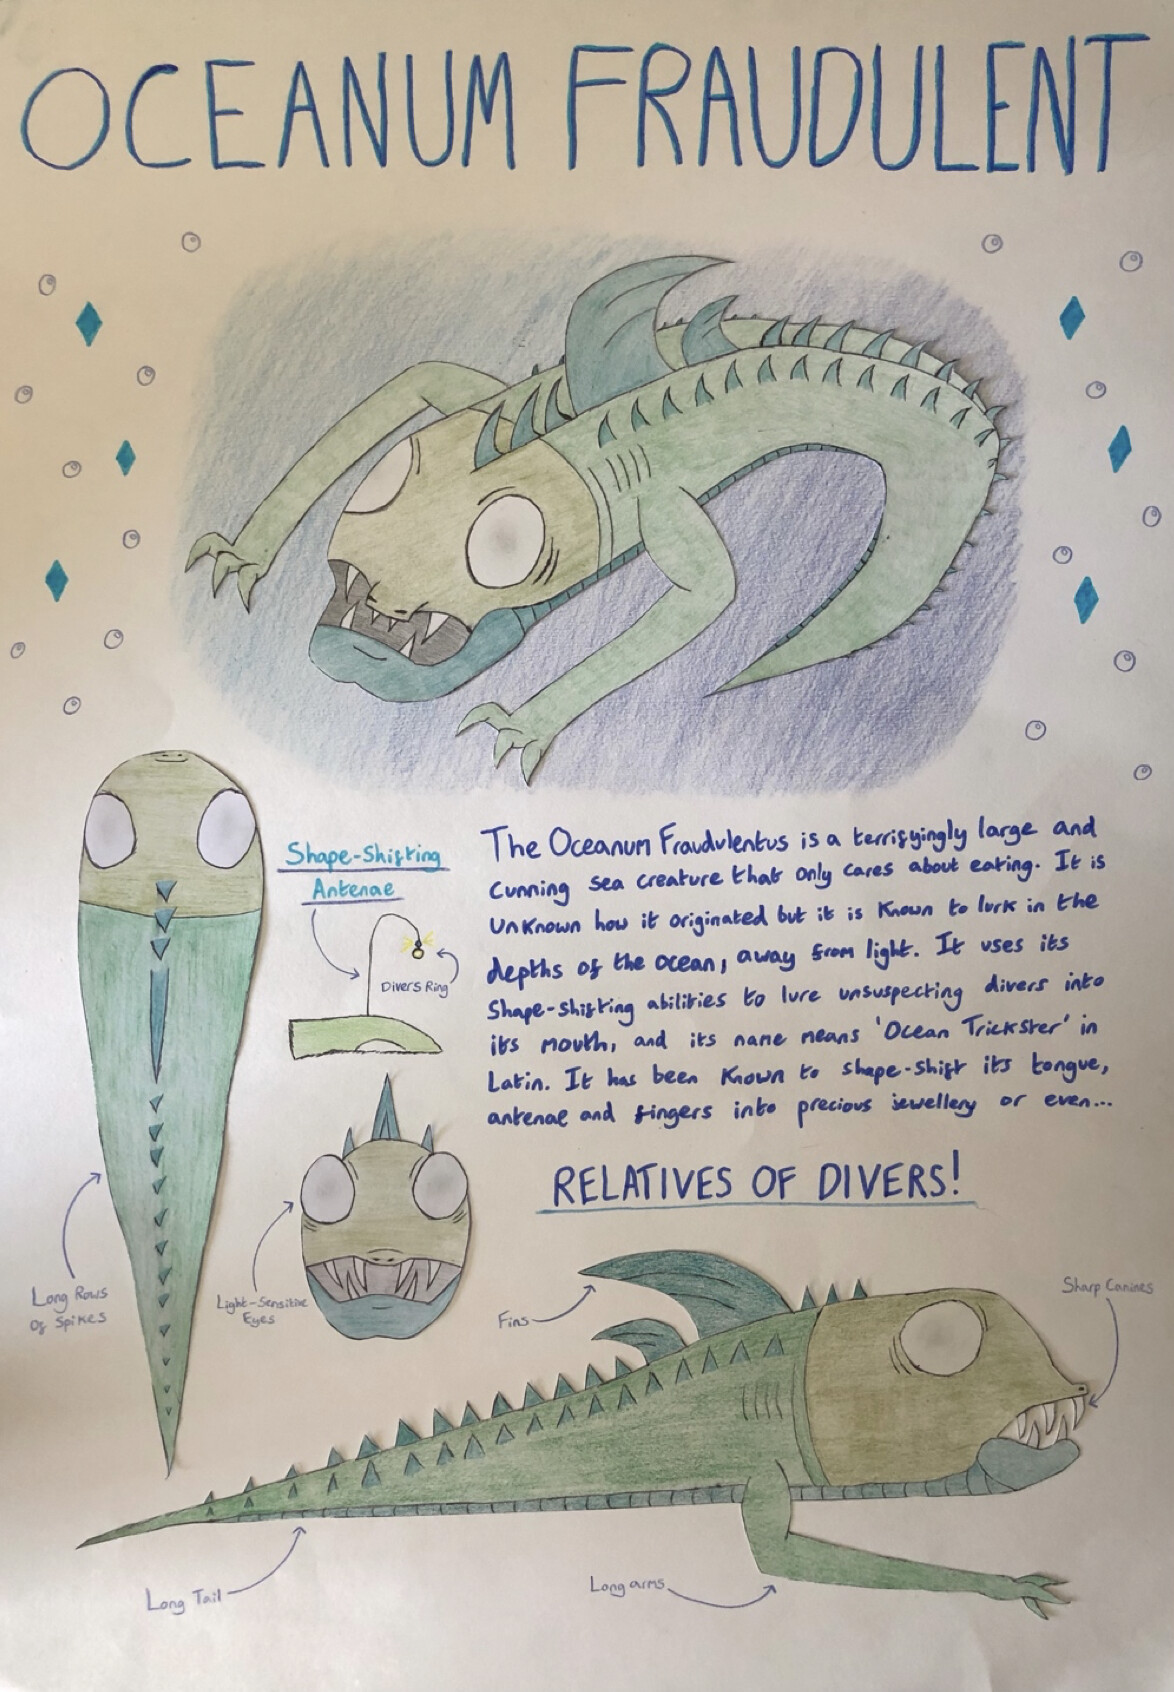 OCEANUM FRAUDULENT
Shape-Shifting
Antenae
Divers Ring
The Oceanum Fraudulentus is a terrifyingly large and
cunning sea creature that only cares about eating. It is
unknown how it originated but it is known to lurk in the
depths of the ocean, away from light. It uses its
shape-shifting abilities to lure unsuspecting divers into
its mouth, and its name means 'Ocean Trickster' in
Latin. It has been known to shape-shift its tongue,
antenae and fingers into precious jewellery or even...
RELATIVES OF DIVERS!
Long Rows
Of Spikes
Light-Sensitive
Eyes
Fins
Sharp Canines
Long Tail
Long arms